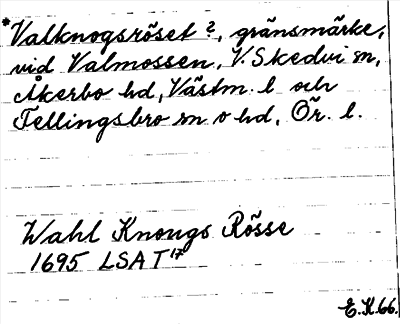 *Valknogsröset ?, gränsmärke,
vid Valmossen, V. Skedvi sn,
Åkerbo hd, Västm. l. och
Fellingsbro sn o hd, Ör. l.
Wahl Knougs Rösse
1695 LSA T 17
E.K.66.